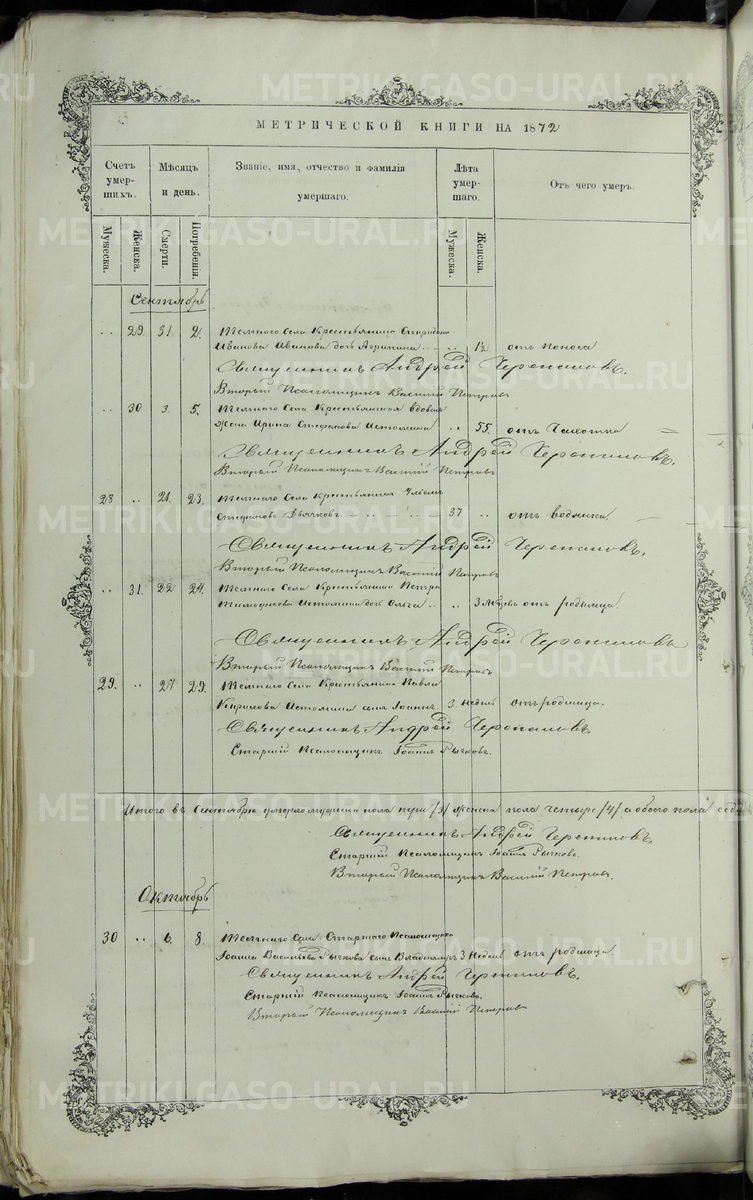 МЕТРИЧЕСКОЙ КНИГИ НА 1872
Счетъ умер-шихъ.
Мѣсяцъ и день.
Званіе, имя, отчество и фамилія умершаго.
Лѣта умер-шаго.
Отъ чего умеръ.
Мужеска. Женска. Смерти. Погребенія. Мужеска. Женска.
Сентябрь
29 31 2. Села Крестьянина Спиридона
Иванова Иванова дочь Агрипина 12 отъ поноса
Священникъ Андрей Черепановъ.
Вторый Псаломщикъ Василій Петровъ
30 3. 5. Села Крестьянская вдовая
жена Ирина Стефанова Истомина 55. отъ Чахотки
Священникъ Андрей Черепановъ.
Вторый Псаломщикъ Василій Петровъ
28 21. 23. Села Крестьянинъ
Стефановъ 37 отъ водянки
Священникъ Андрей Черепановъ.
Вторый Псаломщикъ Василій Петровъ
31. 22 24. Села Крестьянина Петра
Тимофеева Истомина дочь Ольга 3 отъ родимца.
Священникъ Андрей Черепановъ
Вторый Псаломщикъ Василій Петровъ
29. 27 29. Села Крестьянина Павла
Кирилова Истомина сынъ Іоаннъ. 3 недѣл отъ родимца.
Священникъ Андрей Черепановъ
Старшій Псаломщикъ Іоаннъ Рычковъ.
Итого въ Сентябрѣ умерло мужеска пола три /3/ женска пола четыре /4/ а обоего пола
Священникъ Андрей Черепановъ.
Старшій Псаломщикъ Іоаннъ Рычковъ.
Вторый Псаломщикъ Василій Петровъ.
Октябрь
30 6. 8. Села Старшаго Псаломщика
Іоанна Васильева Рычкова сынъ Владиміръ 3 недѣл отъ родимца
Священникъ Андрей Черепановъ.
Старшій Псаломщикъ Іоаннъ Рычковъ.
Вторый Псаломщикъ Василій Петровъ
METRIKI.GASO-URAL.RU